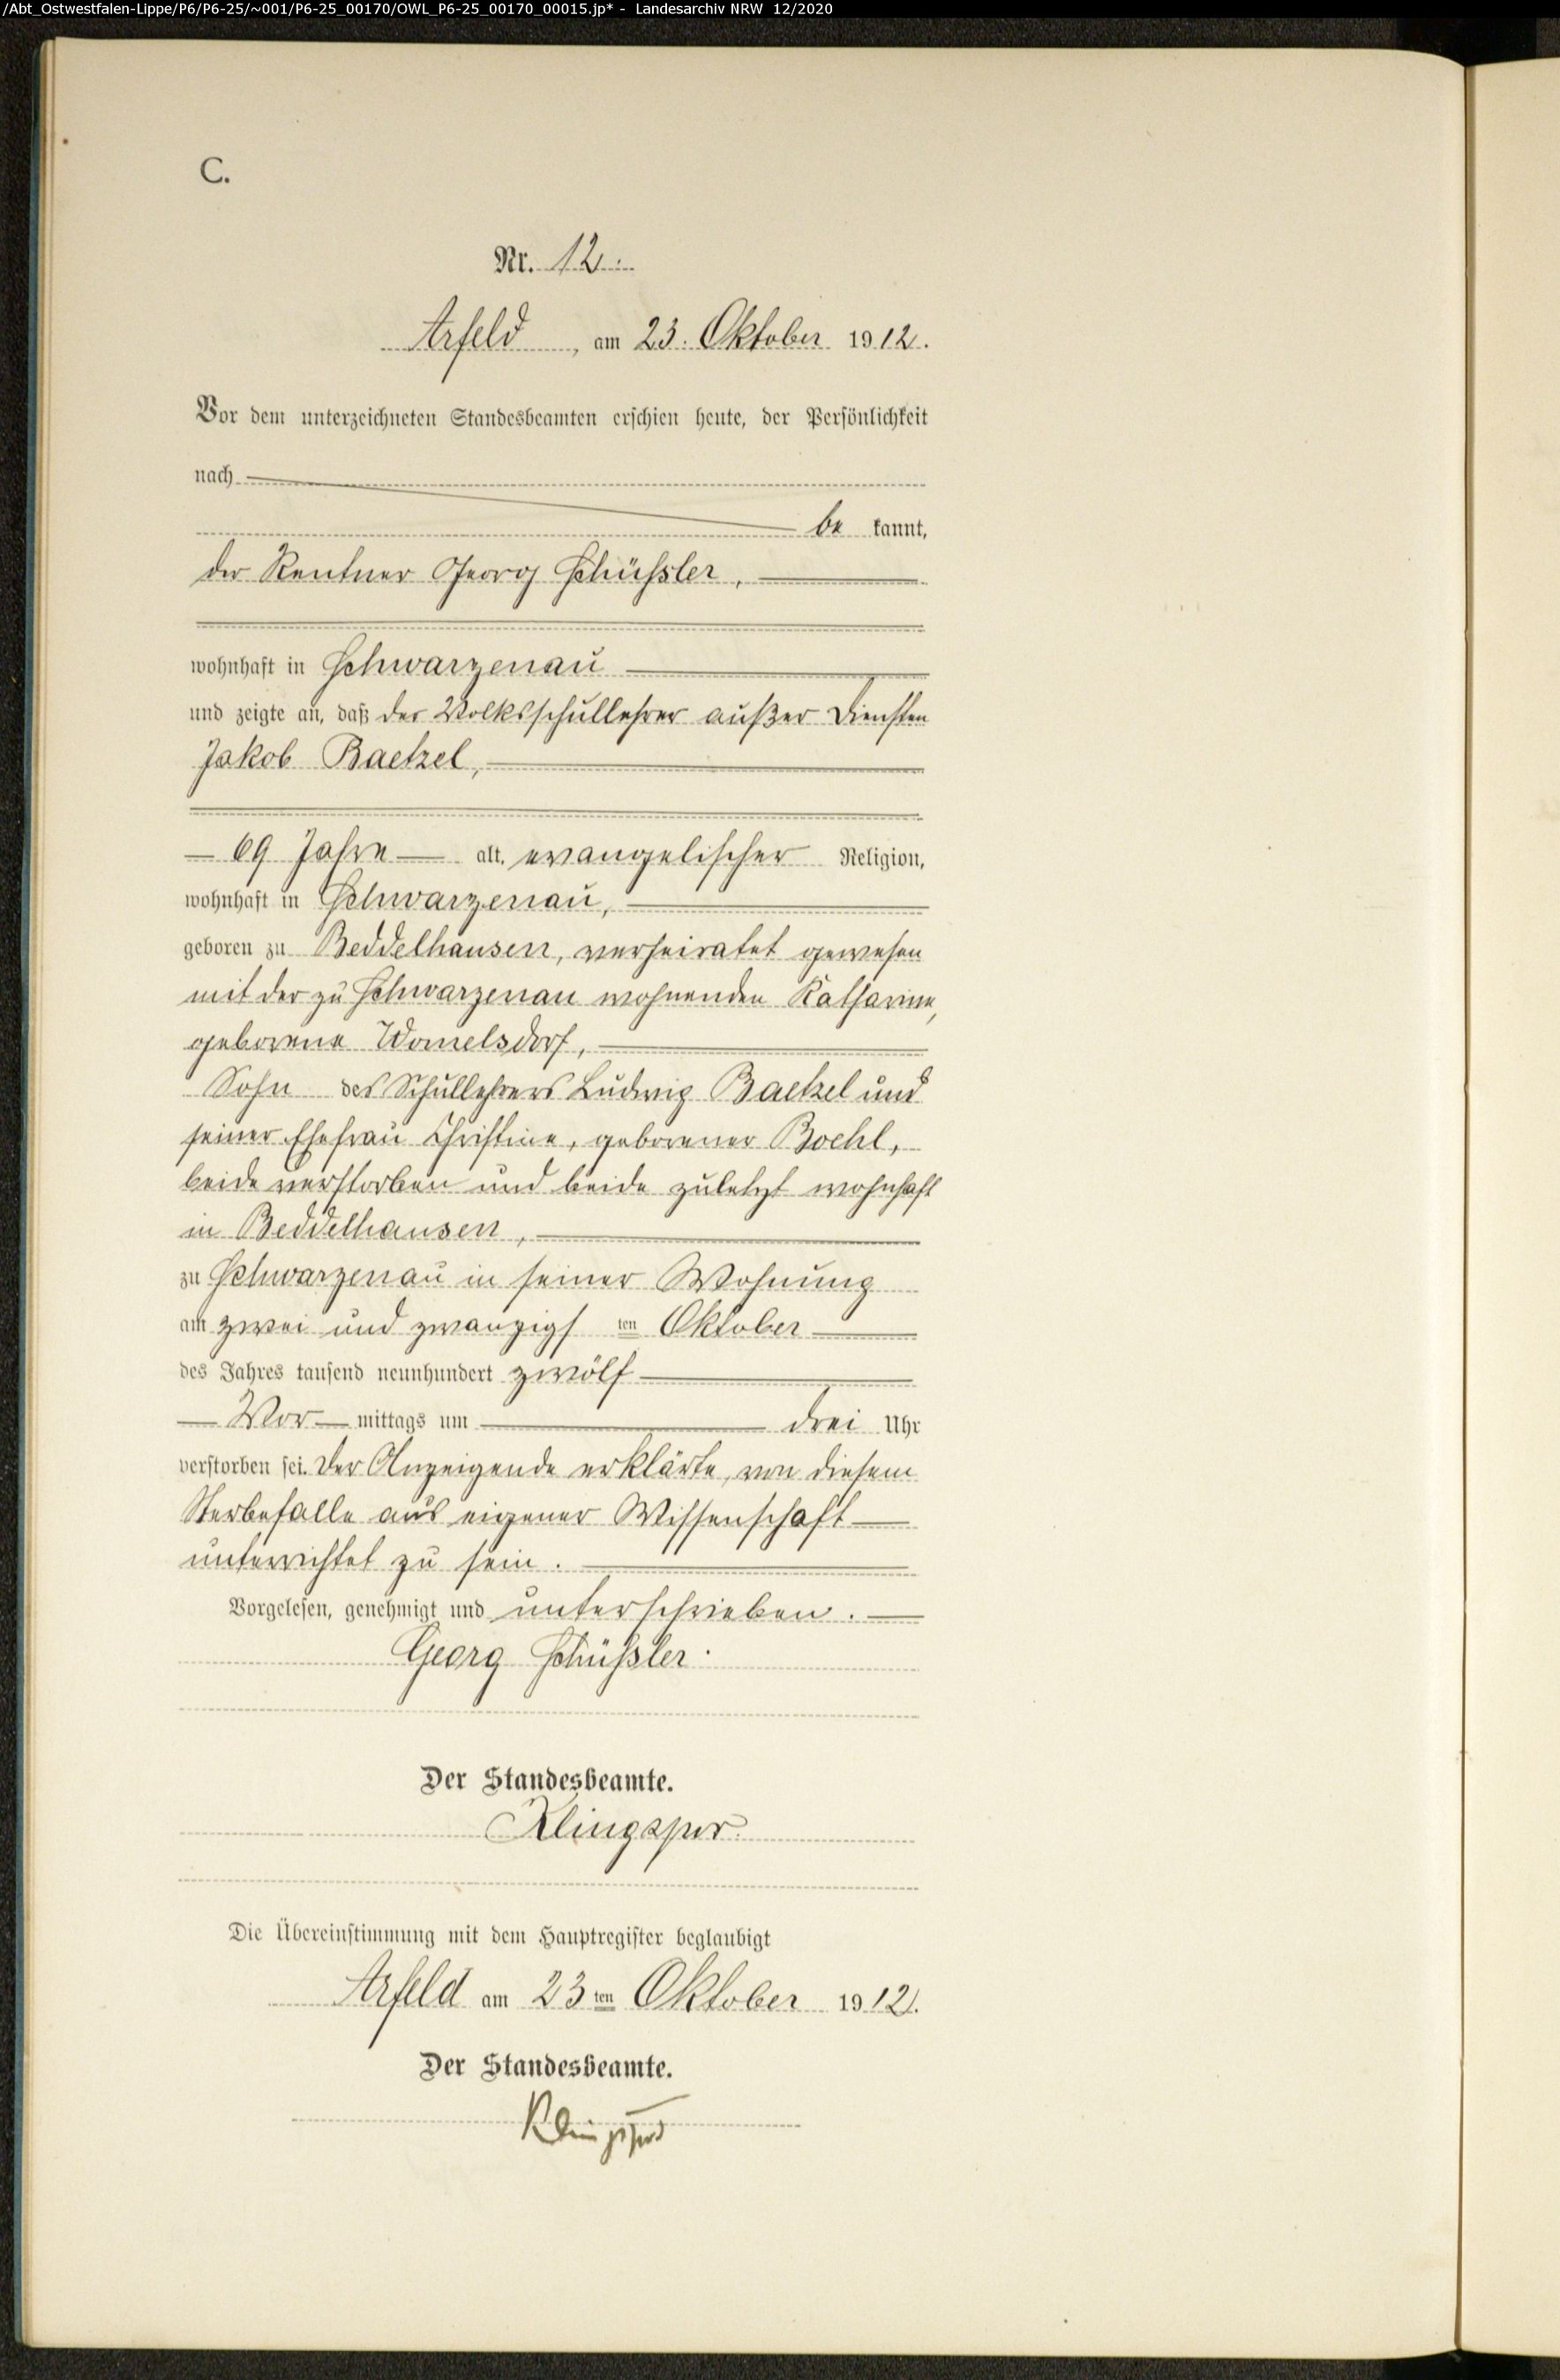 /Abt_Ostwestfalen-Lippe/P6/P6-25/~001/P6-25_00170/OWL_P6-25_00170_00015.jp* - Landesarchiv NRW 12/2020
C.
Nr. 12.
Arfeld, am 23. Oktober 1912.
Vor dem unterzeichneten Standesbeamten erschien heute, der Persönlichkeit
nach
be kannt,
der Rentner Georg Schüssler,
wohnhaft in Schwarzenau
und zeigte an, daß der Volksschullehrer außer Diensten
Jakob Baetzel,
69 Jahre alt, evangelischer Religion,
wohnhaft in Schwarzenau,
geboren zu Beddelhausen, verheiratet gewesen
mit der zu Schwarzenau wohnenden Katharine,
geborene Womelsdorf,
Sohn des Schullehrers Ludwig Baetzel und
seiner Ehefrau Christine, geborener Boehl,
beide verstorben und beide zuletzt wohnhaft
in Beddelhausen,
zu Schwarzenau in seiner Wohnung
am zwei und zwanzigs ten Oktober
des Jahres tausend neunhundert zwölf
Vor mittags um drei Uhr
verstorben sei. Der Anzeigende erklärte, von diesem
Sterbefalle aus eigener Wissenschaft
unterrichtet zu sein.
Vorgelesen, genehmigt und unterschrieben.
Georg Schüssler.
Der Standesbeamte.
Klingspor.
Die Übereinstimmung mit dem Hauptregister beglaubigt
Arfeld am 23 ten Oktober 1912.
Der Standesbeamte.
Klingspor